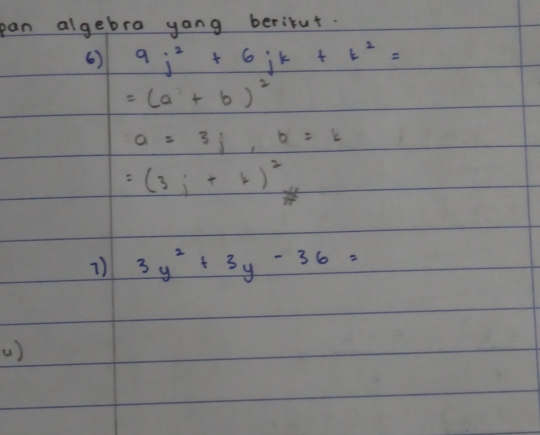 pan algebra yang berikut.
6) 9j² + 6jk + k² =
= (a + b)²
a = 3j, b = k
= (3j + k)² #
7) 3y² + 3y - 36 =
u)